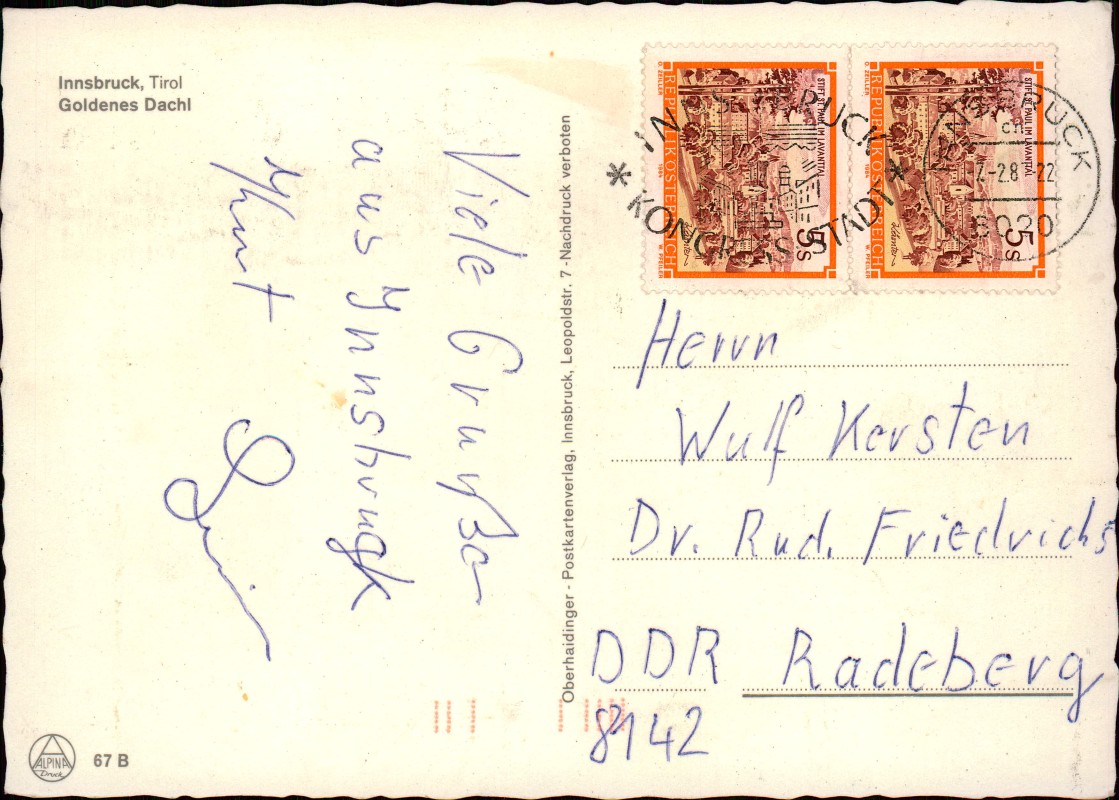 Innsbruck, Tirol
Goldenes Dachl
Viele Grüße
aus Innsbruck
Oberhaidinger - Postkartenverlag, Innsbruck, Leopoldstr. 7 - Nachdruck verboten
REPUBLIK ÖSTERREICH
STIFT ST. PAUL IM LAVANTTAL
Kärnten
5s
O. ZEILER
1984
W. PFEILER
REPUBLIK ÖSTERREICH
STIFT ST. PAUL IM LAVANTTAL
Kärnten
5s
O. ZEILER
1984
W. PFEILER
INNSBRUCK
* KONGRESS STADT *
INNSBRUCK
6020
Herrn
Wulf Kersten
Dr. Rud. Friedrichs
DDR Radeberg
8142
ALPINA
Druck
67 B